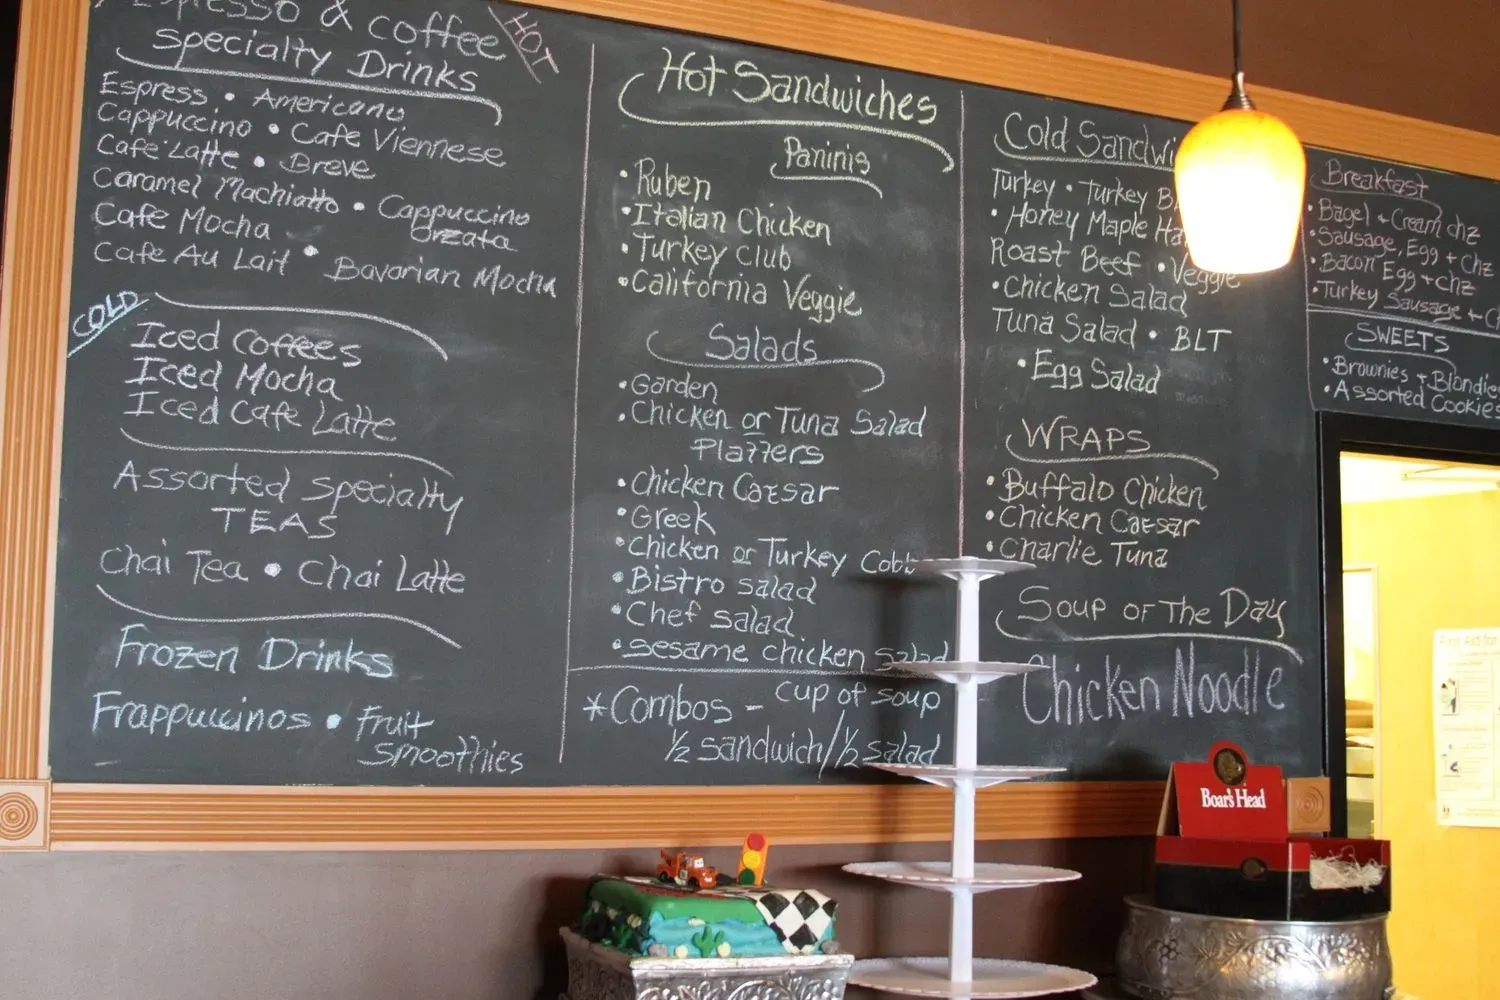 Espresso & coffee
HOT
Specialty Drinks
Espress • Americano
Cappuccino • Cafe Viennese
Cafe Latte • Breve
Caramel Machiatto • Cappuccino
Orzata
Cafe Mocha
Cafe Au Lait • Bavarian Mocha
COLD
Iced Coffees
Iced Mocha
Iced Cafe Latte
Assorted Specialty
TEAS
Chai Tea • Chai Latte
Frozen Drinks
Frappuccinos • Fruit
Smoothies
Hot Sandwiches
Paninis
• Ruben
• Italian Chicken
• Turkey Club
• California Veggie
Salads
• Garden
• Chicken or Tuna Salad
Plazzers
• Chicken Caesar
• Greek
• Chicken or Turkey Cobb
• Bistro salad
• Chef salad
• Sesame chicken salad
*Combos - cup of soup
½ sandwich/½ salad
Cold
Turkey • Turkey
• Honey Maple
Roast Beef • Veggie
• Chicken Salad
Tuna Salad • BLT
• Egg Salad
WRAPS
• Buffalo Chicken
• Chicken Caesar
• Charlie Tuna
Soup of The Day
Chicken Noodle
Breakfast
• Bagel + Cream chz
• Sausage, Egg + Chz
• Bacon Egg + chz
• Turkey Sausage +
SWEETS
• Brownies + Blondies
• Assorted Cookies
Boar's Head